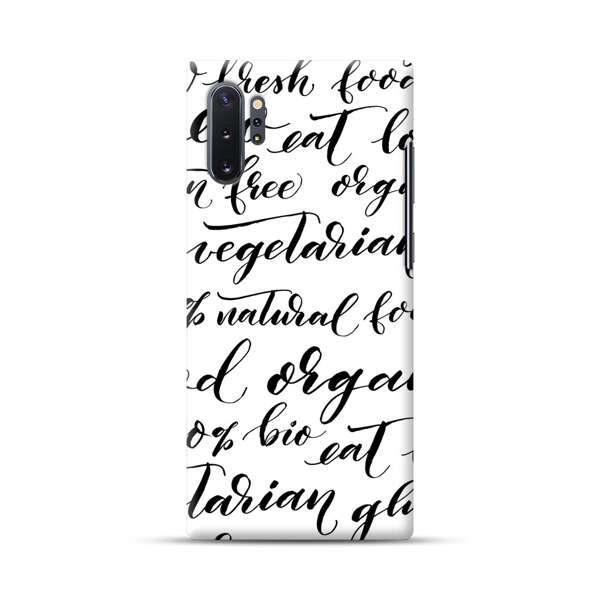 fresh food
eat lo
n free orga
vegetarian
% natural foo
d orga
0% bio eat
tarian glu